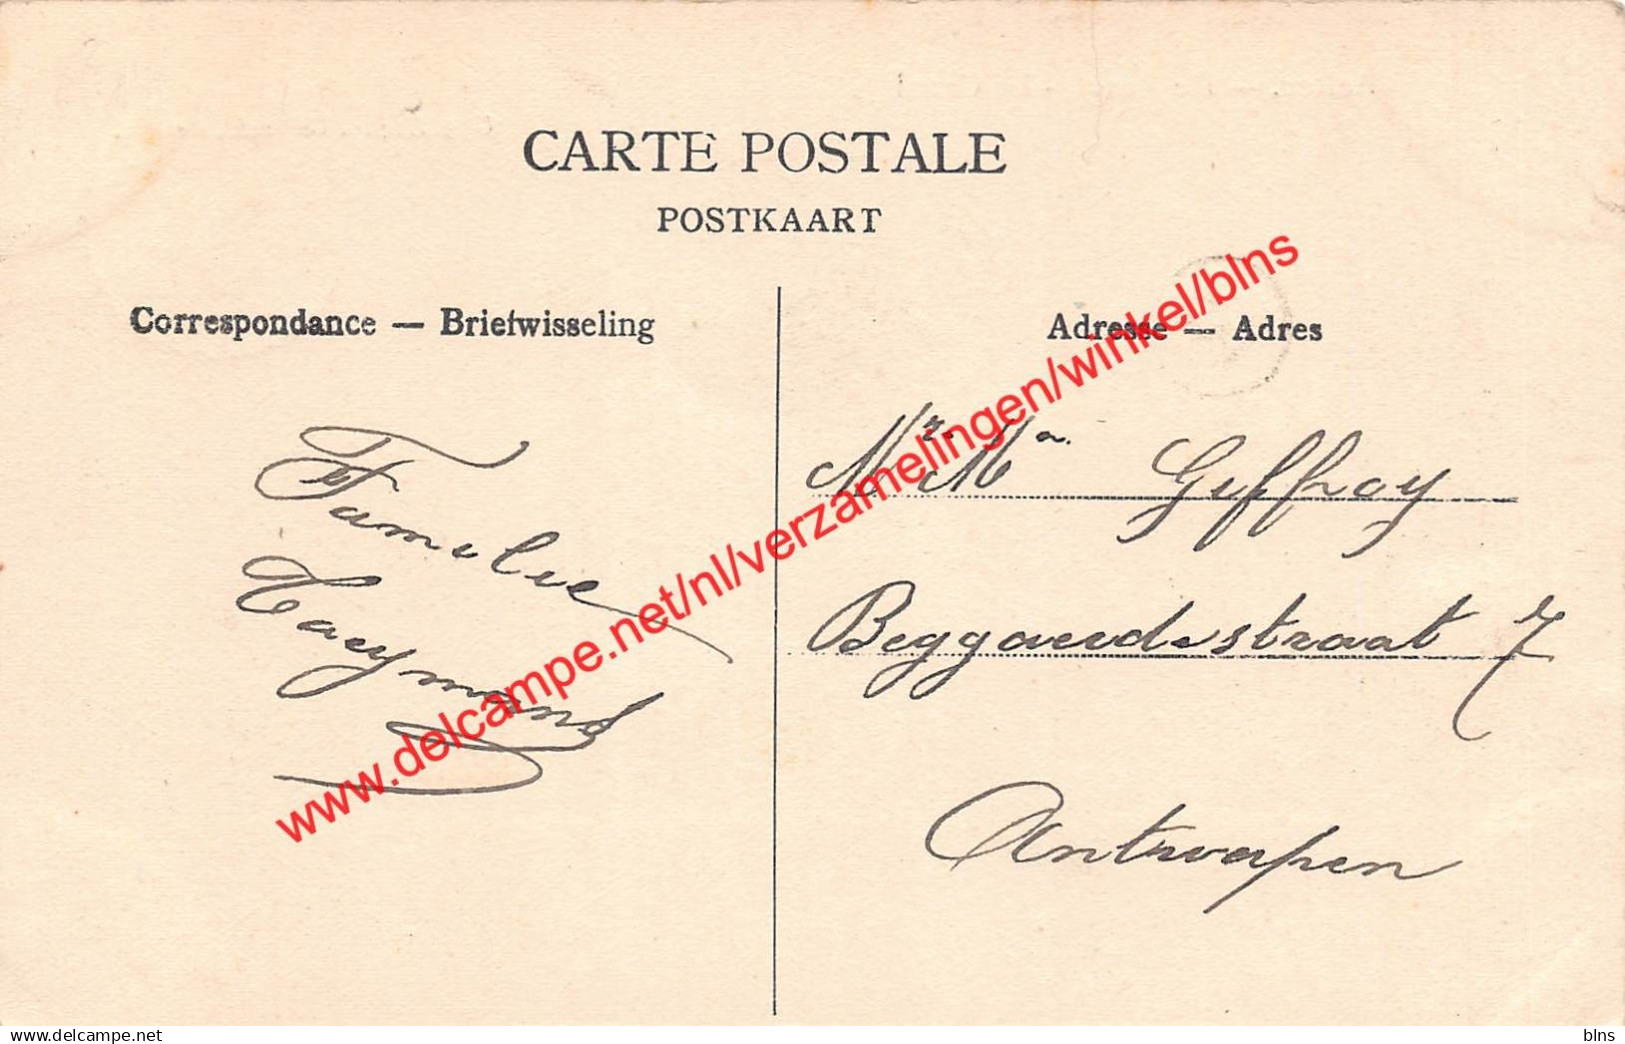 CARTE POSTALE
POSTKAART
Correspondance — Briefwisseling
Adresse — Adres
Familie
Taeymans
Mr. Ma. Geffroy
Beggaardestraat 7
Antwerpen
www.delcampe.net/nl/verzamelingen/winkel/blns
delcampe.net
blns